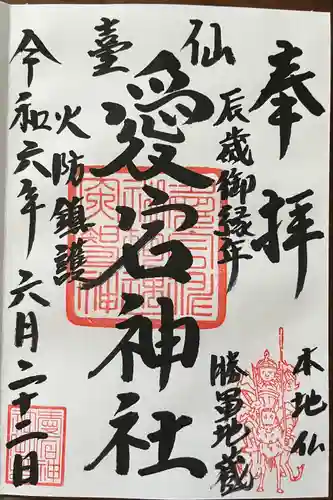 奉拝
仙臺
辰歳御縁年
愛宕神社
火防鎮護
本地仏
勝軍地蔵
令和六年六月二十二日